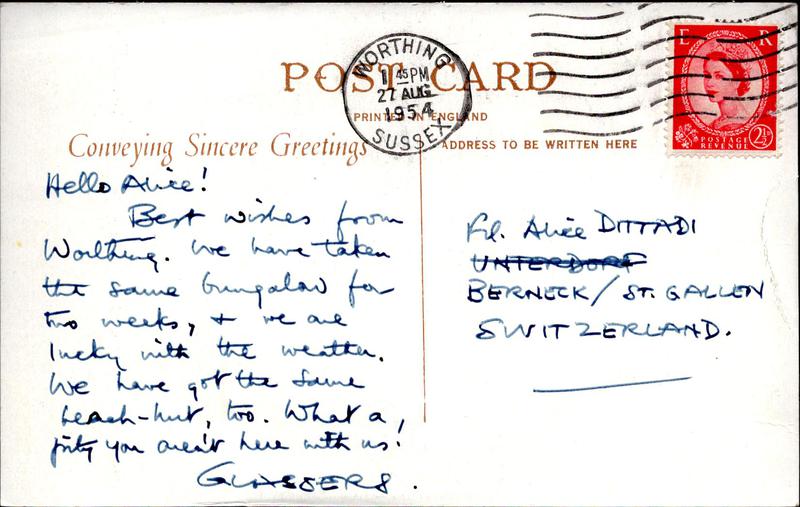 POST CARD
PRINTED IN ENGLAND
Conveying Sincere Greetings
ADDRESS TO BE WRITTEN HERE
WORTHING
1 45 PM
27 AUG
1954
SUSSEX
E R
POSTAGE
REVENUE
2½
Hello Alice!
Best wishes from
Worthing. We have taken
the same bungalow for
two weeks, & we are
lucky with the weather.
We have got the same
beach-hut, too. What a
pity you aren't here with us!
GLASSERS.
Frl. Alice DITTADI
UNTERDORF
BERNECK/ST. GALLEN
SWITZERLAND.